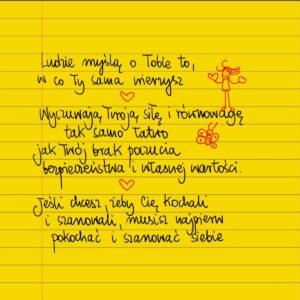 Ludzie myślą o Tobie to,
w co Ty sama wierzysz
Wyczuwają Twoją siłę i równowagę
tak samo łatwo
jak Twój brak poczucia
bezpieczeństwa i własnej wartości.
Jeśli chcesz, żeby Cię kochali
i szanowali, musisz najpierw
pokochać i szanować siebie.